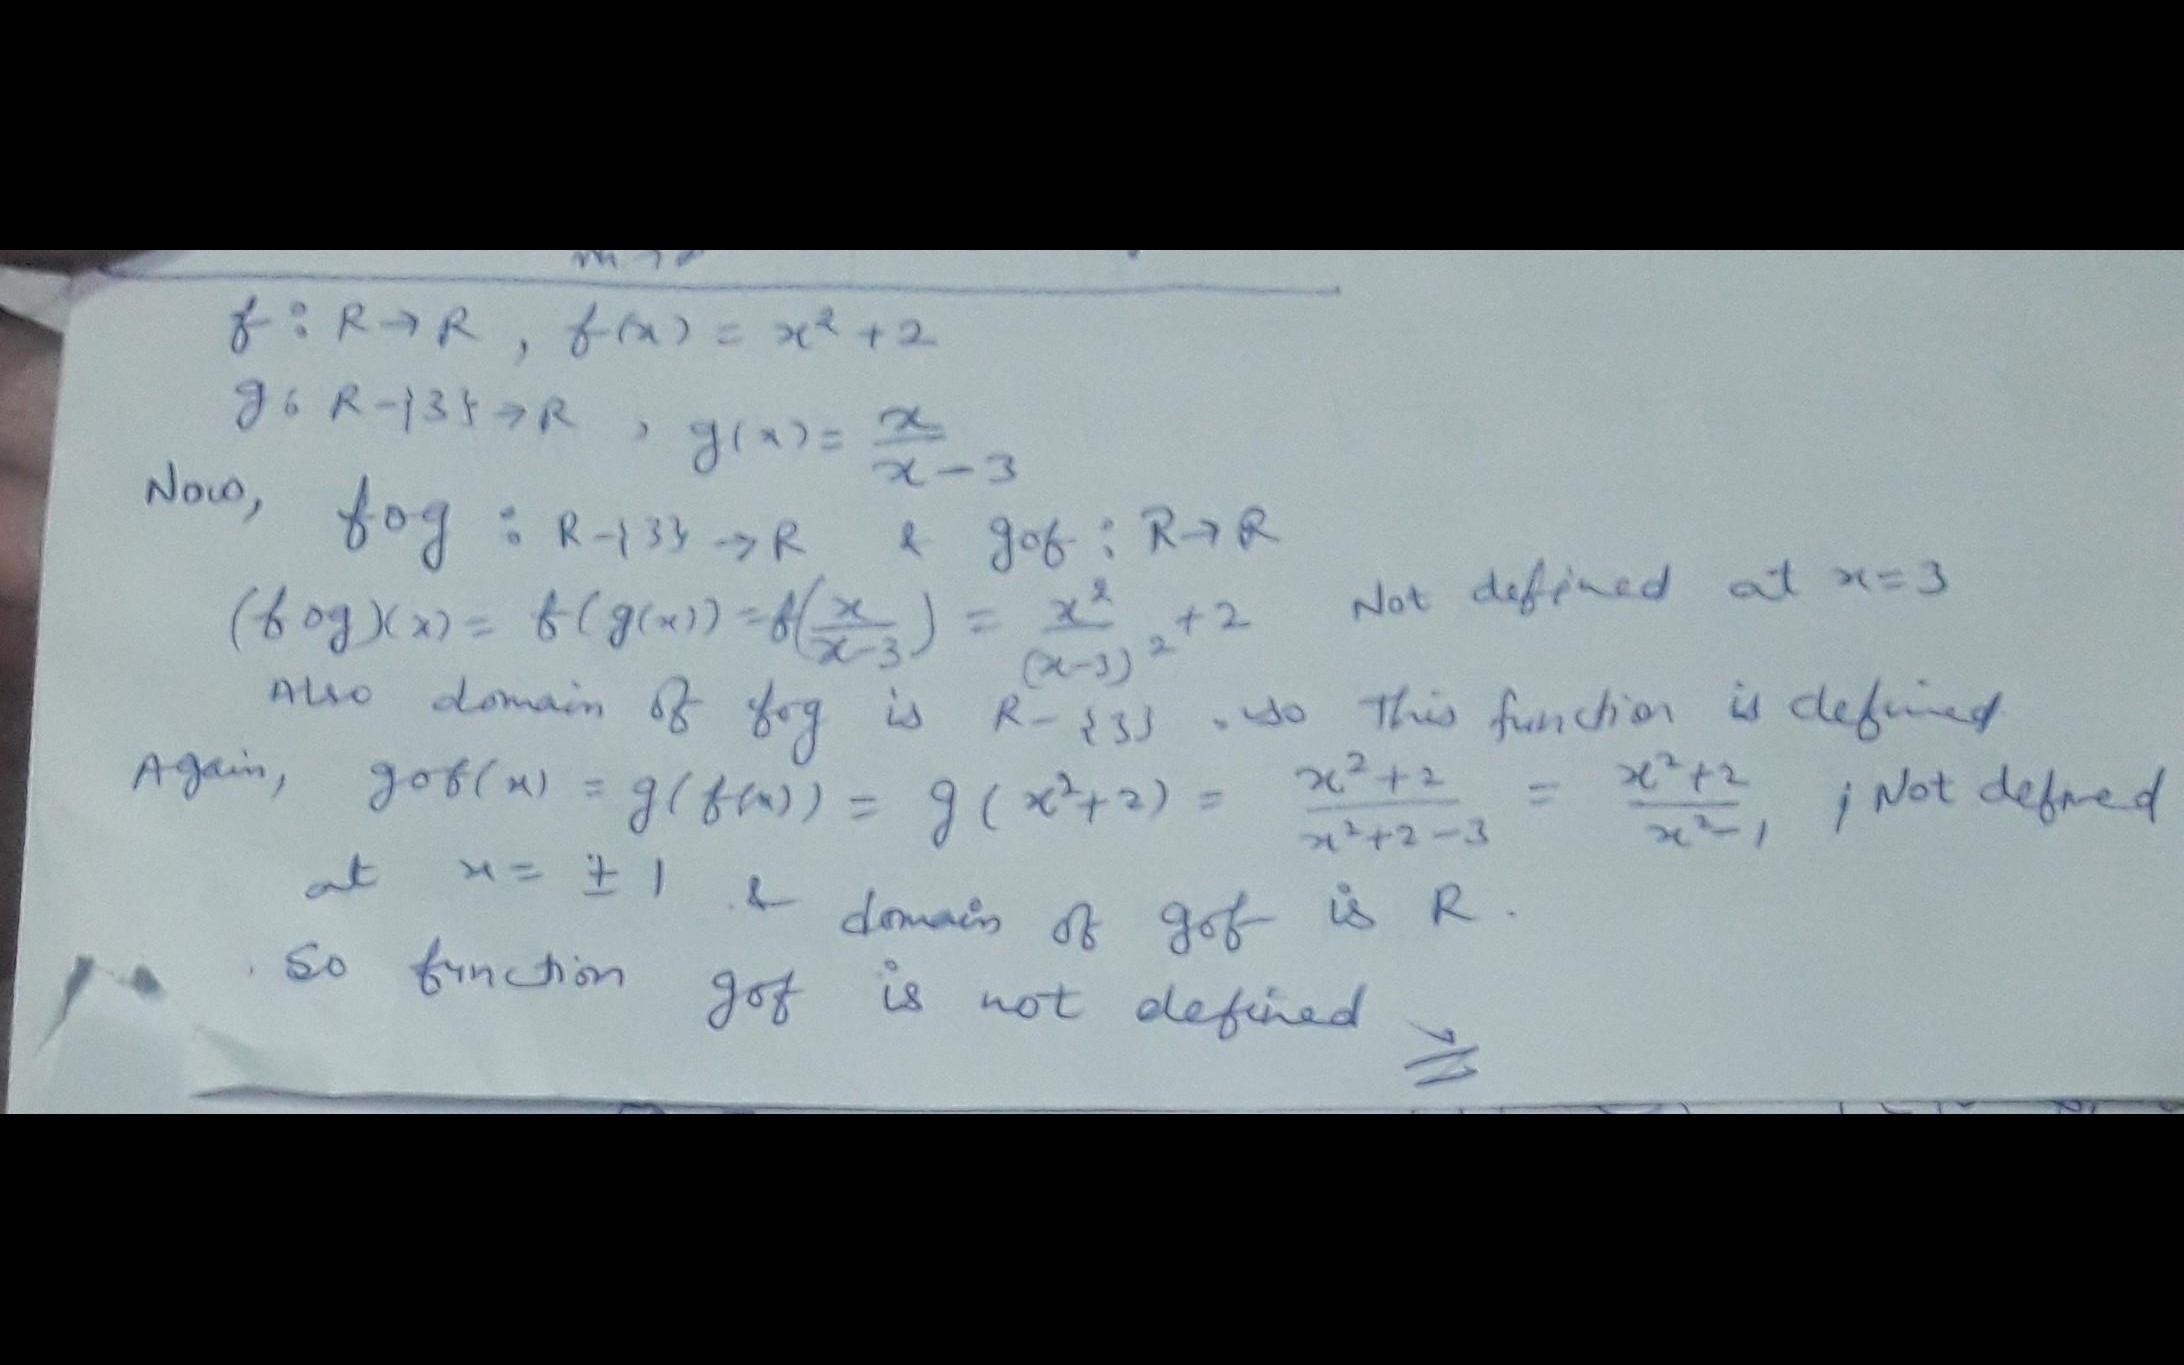 f : R → R , f(x) = x² + 2
g : R - {3} → R , g(x) = x / (x - 3)
Now, fog : R - {3} → R & gof : R → R
(fog)(x) = f(g(x)) = f(x / (x-3)) = x² / (x-3)² + 2 Not defined at x = 3
Also domain of fog is R - {3} . so This function is defined
Again, gof(x) = g(f(x)) = g(x² + 2) = (x² + 2) / (x² + 2 - 3) = (x² + 2) / (x² - 1) ; Not defined
at x = ± 1 & domain of gof is R .
So function gof is not defined